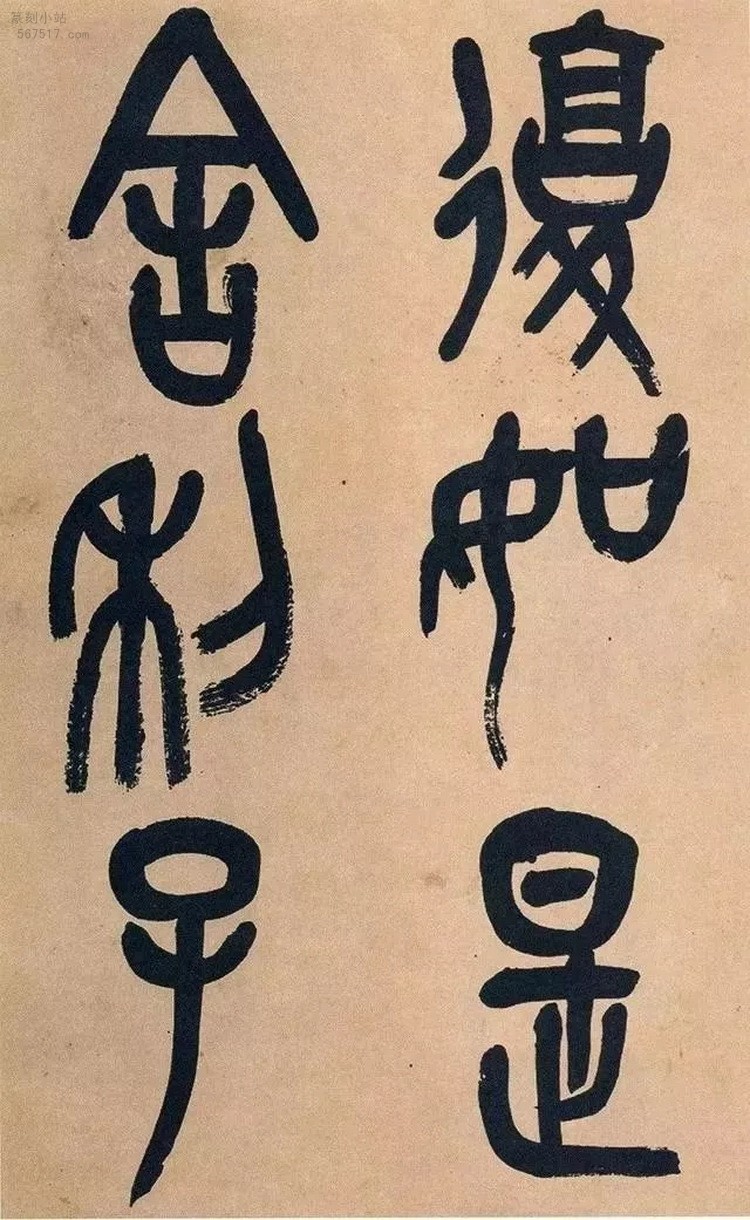 復如是
舍利子
篆刻小站
567517.com